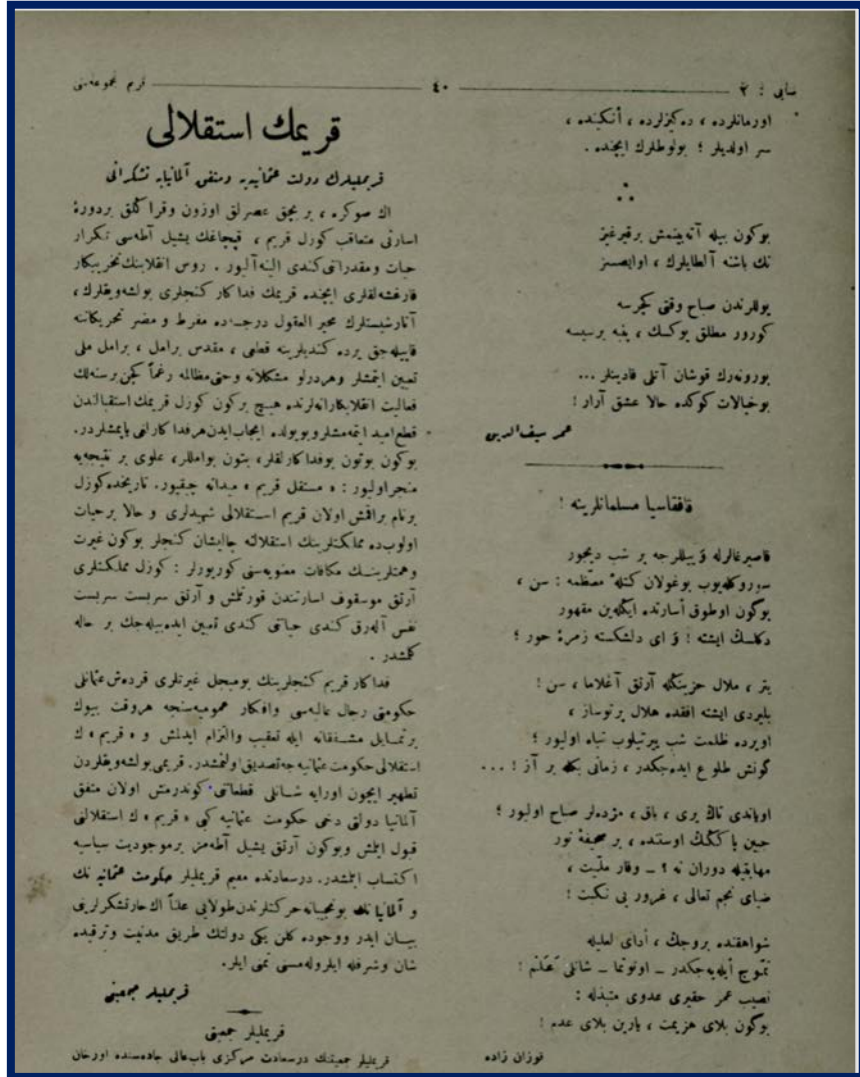 صایی : ٢
٤٠
قریم مجموعه‌سی
اورمانلرده ، ده‌كیزلرده ، أنكینده ،
سر اولدیلر ؛ بولوطلرك ایچنده .
بوكون بیله آته بینمش برقیرغیز
تك باشنه آلطایلرك ، اوایصسز
یوللرندن صباح وقتی كچرسه
كورور مطلق یوكسك ، ینه برسیسه
بورونه‌رك قوشان آتلی قادینلر ...
بوخیالات كوكده حالا عشق آرار !
عمر سیف الدین
قافقاسیا مسلمانلرینه !
قاصیرغالرله ییللرجه بر شب دیجور
سوروكله‌یوب بوغولان كتلهٔ معظمه : سن ،
بوكون اوطوق أسارتده ایكله‌ین مقهور
دكلسك ایشته ! ای دلشكسته زمرهٔ حور ؛
یتر ، ملال حزینكله آرتق آغلاما ، سن !
بلیردی ایشته افقده هلال پرتوساز ،
اویرده ظلمت شب ییرتیلوب تباه اولیور ؛
گونش طلوع ایده‌جكدر ، زمانی بكله بر آز ! ...
اویاندی تاك یری ، باق ، مژده‌لر صباح اولیور ؛
جبین پاكگك اوستنده ، بر صحیفهٔ نور
مهابتیله دوران نه ؟ ــ وقار ملّیت ،
ضیای نجم تعالی ، غرور بی نكبت !
شواهقنده بروجك ، أدای لعلیله
تموّج أیله‌یه‌جكدر ــ اونوتما ــ شانلی عَلَم !
نصیب عمر حقیری عدوی متبذله :
بوگون بلای هزیمت ، یارین بلای عدم !
فوزان زاده
قریمك استقلالی
قریملیلرك دولت عثمانیه‌یه ومتفقی آلمانیایه تشكراتی
اك صوكره ، بر بچق عصرلق اوزون وقراكلق بردورهٔ
اسارتی متعاقب كوزل قریم ، قیچاغك یشیل آطه‌سی تكرار
حیات ومقدراتی كندی الینه آلیور . روس انقلابنك تخریبكار
قارغشه‌لقلری ایچنده قریمك فداكار كنجلری بولشه‌ویقلرك ،
آنارشیستلرك محیر العقول درجه‌ده مفرط و مضر تحریكاتنه
قاپیله‌جق یرده كندیلرینه قطعی ، مقدس برامل ، برامل ملی
تعیین ایتمشلر وهردرلو مشكلاته وحتی مظالمه رغماً كچن برسنه‌لك
فعالیت انقلابكارانه‌لرنده هیچ بركون كوزل قریمك استقبالندن
قطع امید ایتمه‌مشلر وبویولده ایجاب ایدن هر فداكارلغی یاپمشلردر.
بوكون بوتون بوفداكارلقلر، بتون بواملر، علوی بر نتیجه‌یه
منجر اولیور : « مستقل قریم » میدانه چیقیور. تاریخده كوزل
برنام براقمش اولان قریم استقلالی شهیدلری و حالا برحیات
اولوب‌ده مملكتلرینك استقلالنه چالیشان كنجلر بوكون غیرت
وهمتلرینك مكافات معنویه‌سنی كوریورلر : كوزل مملكتلری
آرتق موسقوف اسارتندن قورتلمش و آرتق سربست سربست
نفس آله‌رق كندی حیاتی كندی تعیین ایده‌بیله‌جك بر حاله
كلمشدر .
فداكار قریم كنجلرینك بومبجل غیرتلری قرده‌ش عثمانلی
حكومتی رجال عالیه‌سی وافكار عمومیه‌سنجه هروقت بیوك
برتمایل مشفقانه ایله تعقیب والتزام ایدلمش و « قریم » ك
استقلالی حكومت عثمانیه جه تصدیق اولنمشدر. قریمی بولشه‌ویقلردن
تطهیر ایچون اورایه شانلی قطعاتی كوندرمش اولان متفق
آلمانیا دولتی دخی حكومت عثمانیه كبی « قریم » ك استقلالنی
قبول ایتمش وبوكون آرتق یشیل آطه‌مز برموجودیت سیاسیه
اكتساب ایتمشدر. درسعادتده مقیم قریملیلر حكومت عثمانیه نك
و آلمانیا نك بونجیبانه حركتلرندن طولایی علناً اك حارتشكرلرینی
بیان ایدر ووجوده كلن یكی دولتك طریق مدنیت وترقیده
شان وشرفله ایلروله‌مسنی تمنی ایلر.
قریملیلر جمعیتی
قریملیلر جمعیتی
قریملیلر جمعیتنك درسعادت مركزی باب عالی جاده‌سنده اورخان